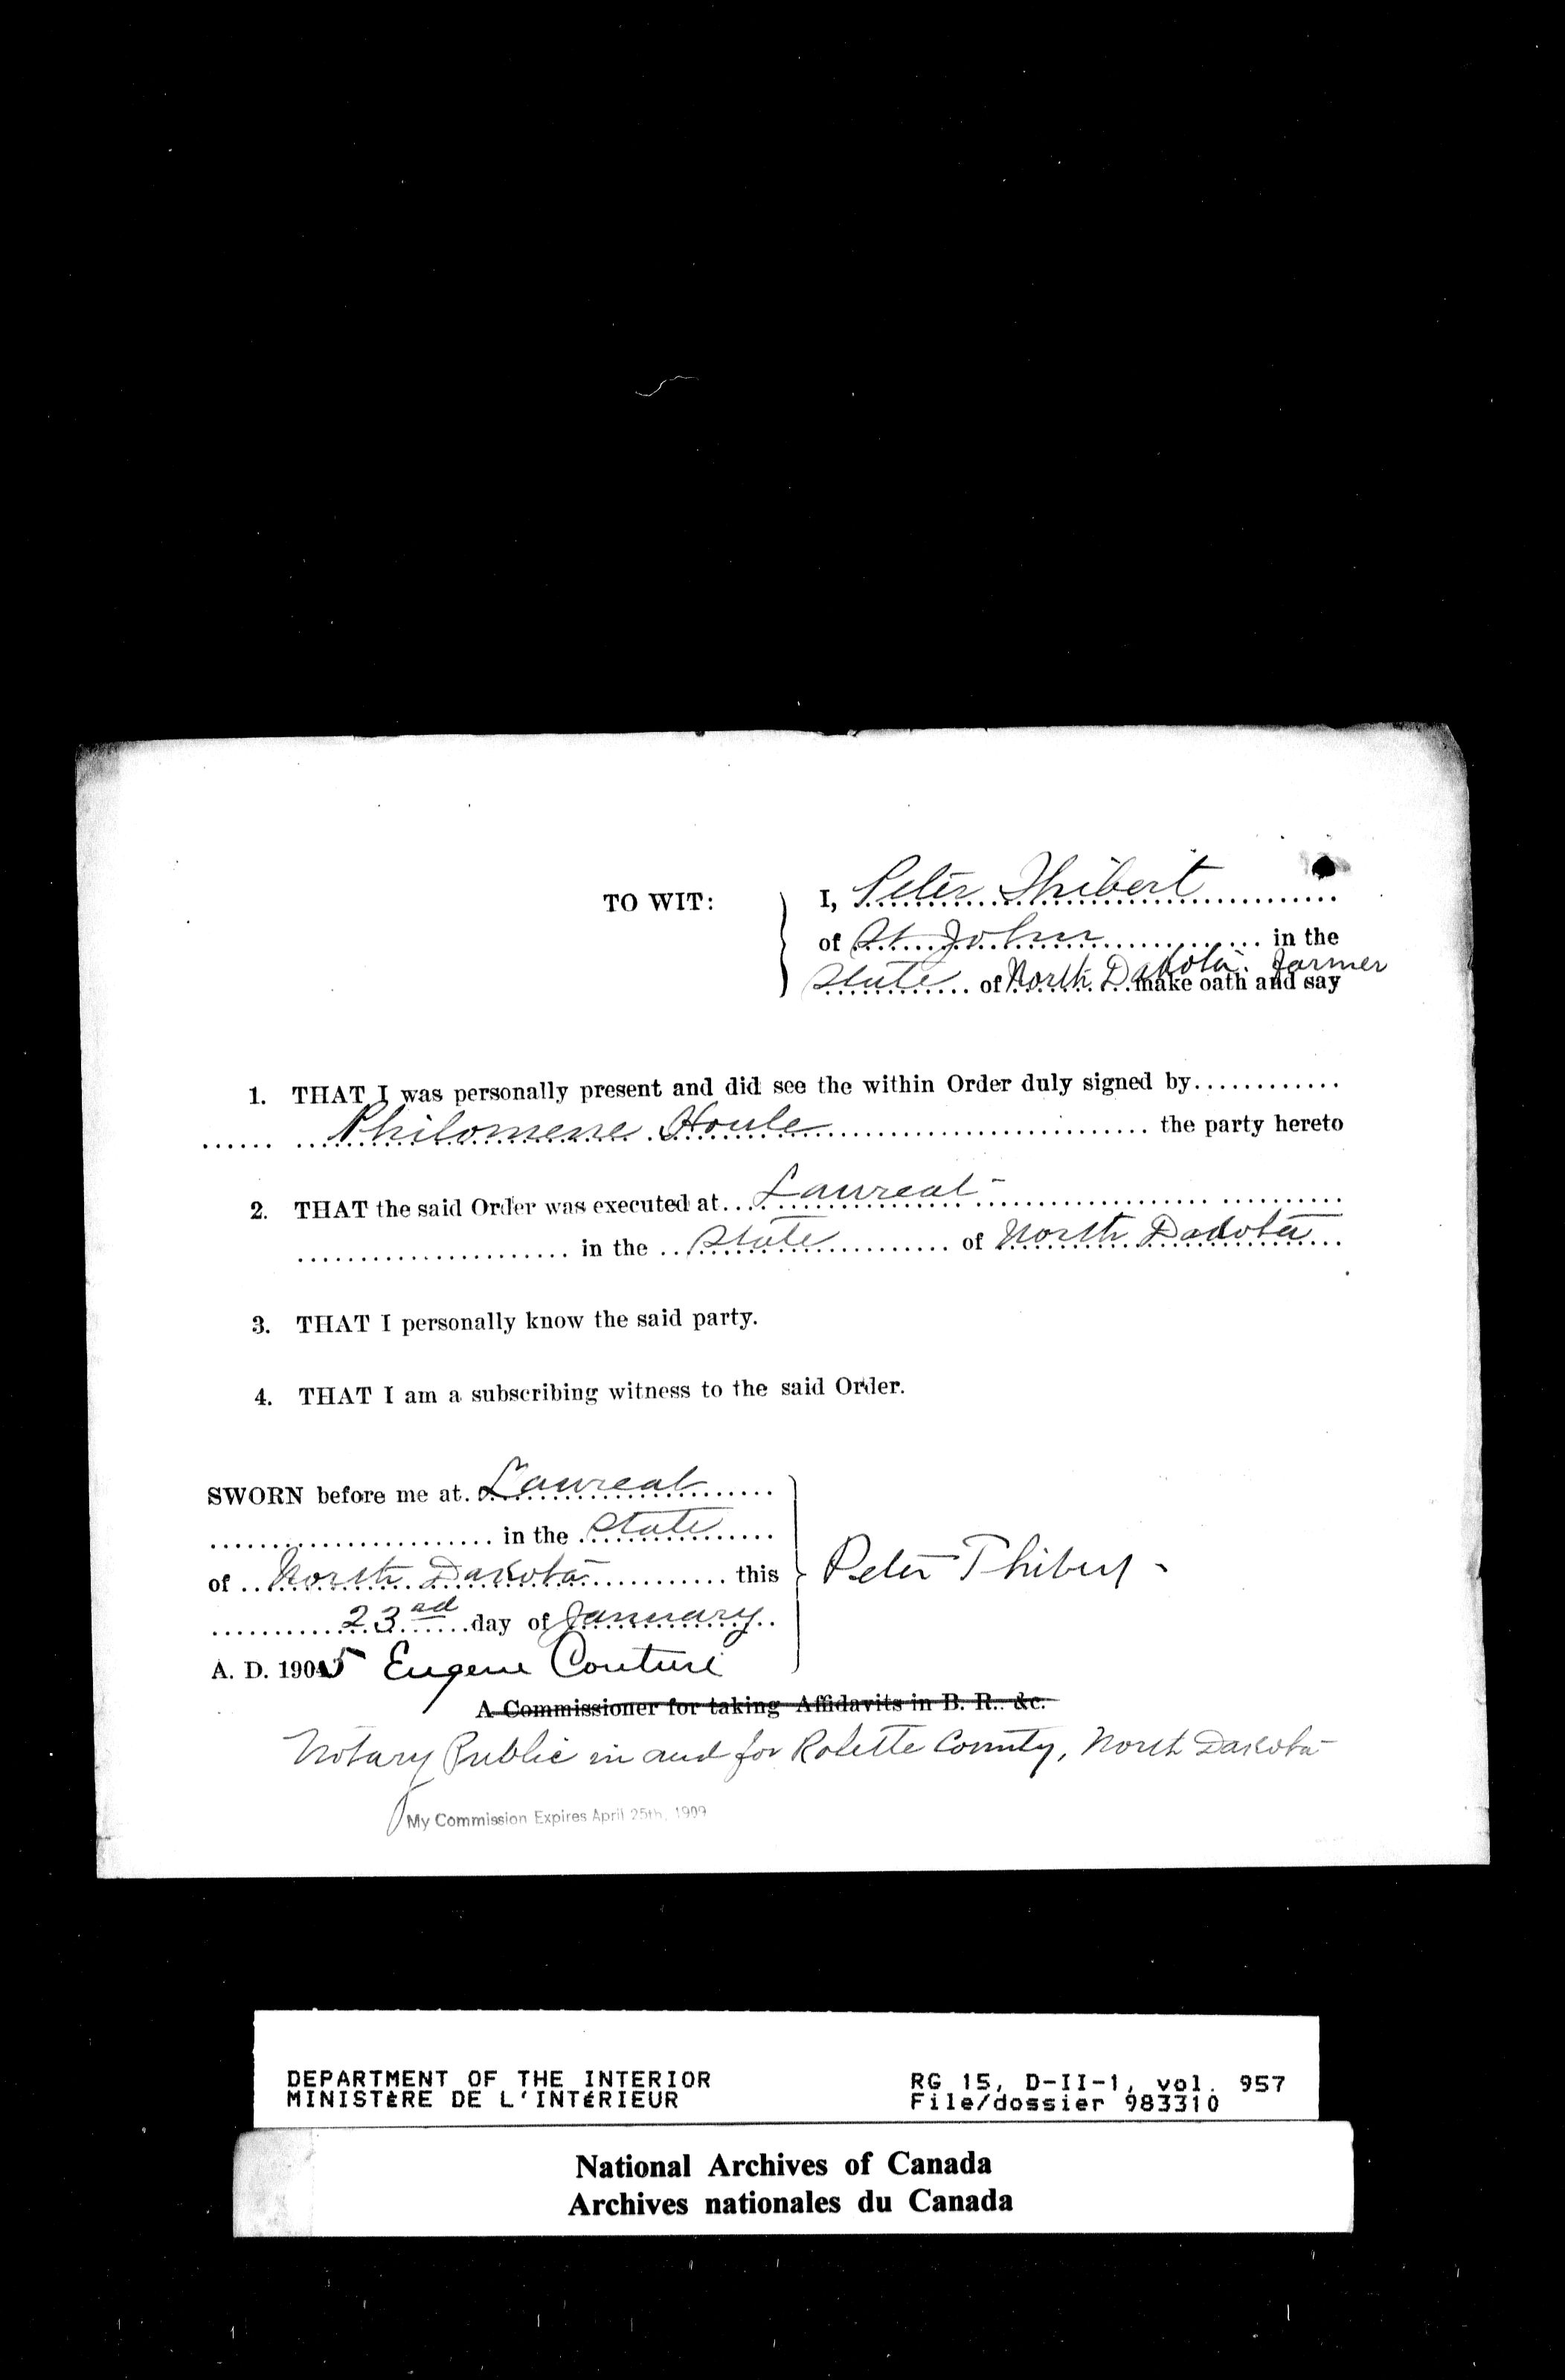 TO WIT:
I, Peter Thibert
of St. John in the
State of North Dakota. farmer make oath and say
1. THAT I was personally present and did see the within Order duly signed by
Philomene Houle the party hereto
2. THAT the said Order was executed at Laureat
in the State of North Dakota
3. THAT I personally know the said party.
4. THAT I am a subscribing witness to the said Order.
SWORN before me at Laureat
in the State
of North Dakota this
23rd day of January
A. D. 1905
Peter Thibert
Eugene Couture
A Commissioner for taking Affidavits in B. R. &c.
Notary Public in and for Rolette County, North Dakota
My Commission Expires April 25th, 1909
DEPARTMENT OF THE INTERIOR
MINISTÈRE DE L'INTÉRIEUR
RG 15, D-II-1, vol. 957
File/dossier 983310
National Archives of Canada
Archives nationales du Canada